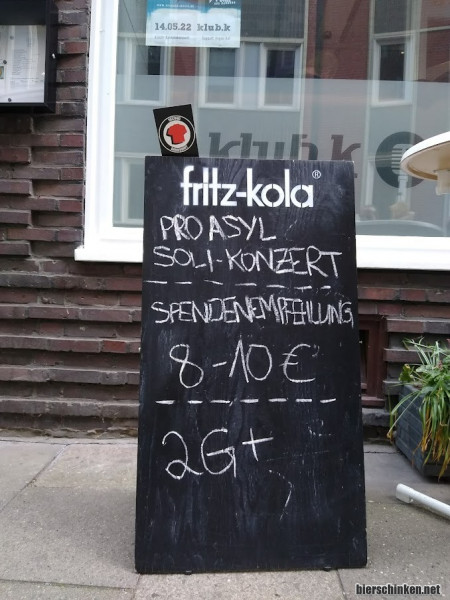 14.05.22 klub.k
klub.k
fritz-kola®
PRO ASYL
SOLI-KONZERT
SPENDENEMPFEHLUNG
8-10 €
2G+
bierschinken.net